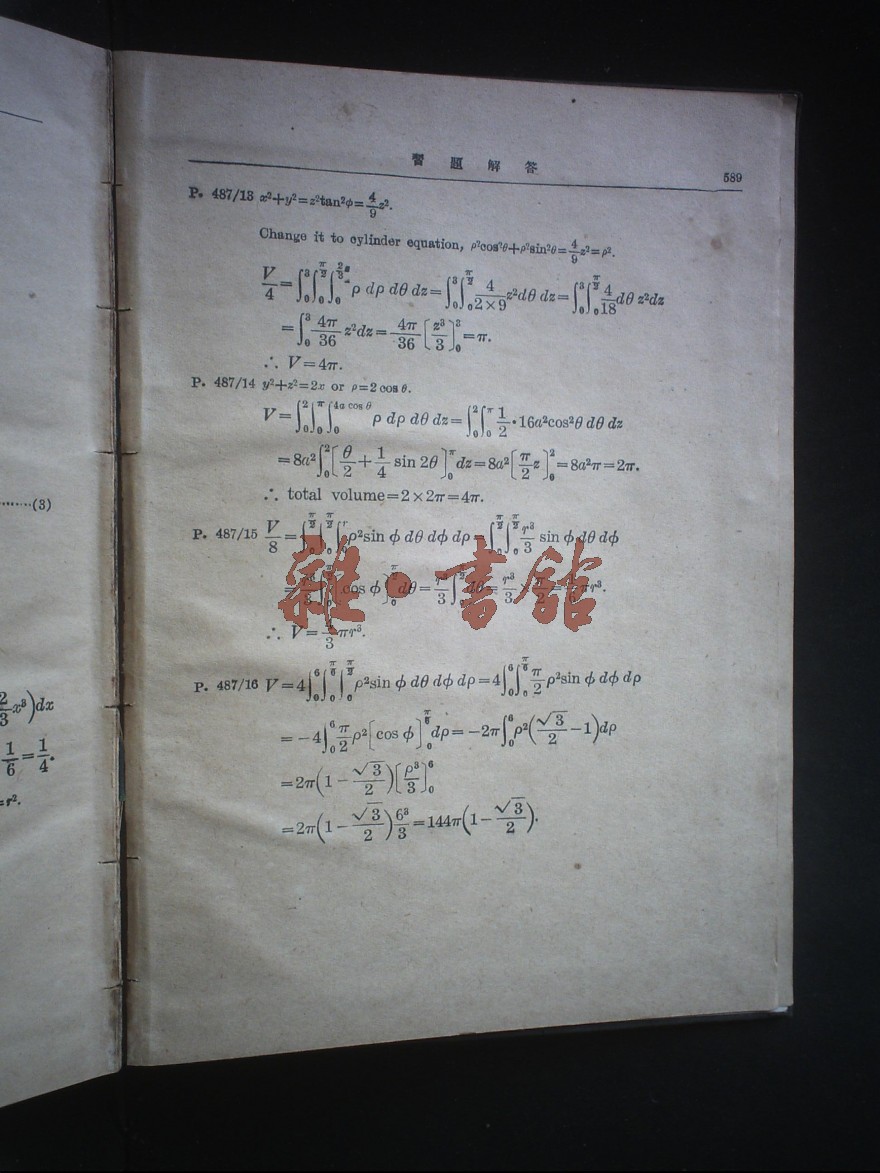 習題解答
589
P. 487/13 x²+y²=z²tan²φ=4/9 z².
Change it to cylinder equation, ρ²cos²θ+ρ²sin²θ=4/9 z²=ρ².
V/4=∫₀³∫₀^{π/2}∫₀^{2/3 z} ρ dρ dθ dz=∫₀³∫₀^{π/2} 4/(2×9) z²dθ dz=∫₀³∫₀^{π/2} 4/18 dθ z²dz
=∫₀³ 4π/36 z²dz=4π/36 [z³/3]₀³=π.
∴ V=4π.
P. 487/14 y²+z²=2x or ρ=2 cos θ.
V=∫₀²∫₀^π∫₀^{4a cos θ} ρ dρ dθ dz=∫₀²∫₀^π 1/2·16a²cos²θ dθ dz
=8a²∫₀²[θ/2+1/4 sin 2θ]₀^π dz=8a²[π/2 z]₀²=8a²π=2π.
∴ total volume=2×2π=4π.
P. 487/15 V/8=∫₀^{π/2}∫₀^{π/2}∫₀^r ρ²sin φ dθ dφ dρ=∫₀^{π/2}∫₀^{π/2} r³/3 sin φ dθ dφ
cos φ]₀^{π/2} dθ=r³/3∫₀^{π/2} dθ=r³/3×π/2=
∴ V= /3 πr³.
P. 487/16 V=4∫₀⁶∫₀^{π/6}∫₀^{π/2} ρ²sin φ dθ dφ dρ=4∫₀⁶∫₀^{π/6} π/2 ρ²sin φ dφ dρ
=−4∫₀⁶ π/2 ρ²[cos φ]₀^{π/6} dρ=−2π∫₀⁶ρ²(√3/2−1)dρ
=2π(1−√3/2)[ρ³/3]₀⁶
=2π(1−√3/2)6³/3=144π(1−√3/2).
雜·書舘
······(3)
2/3 x³)dx
1/6=1/4.
=r².